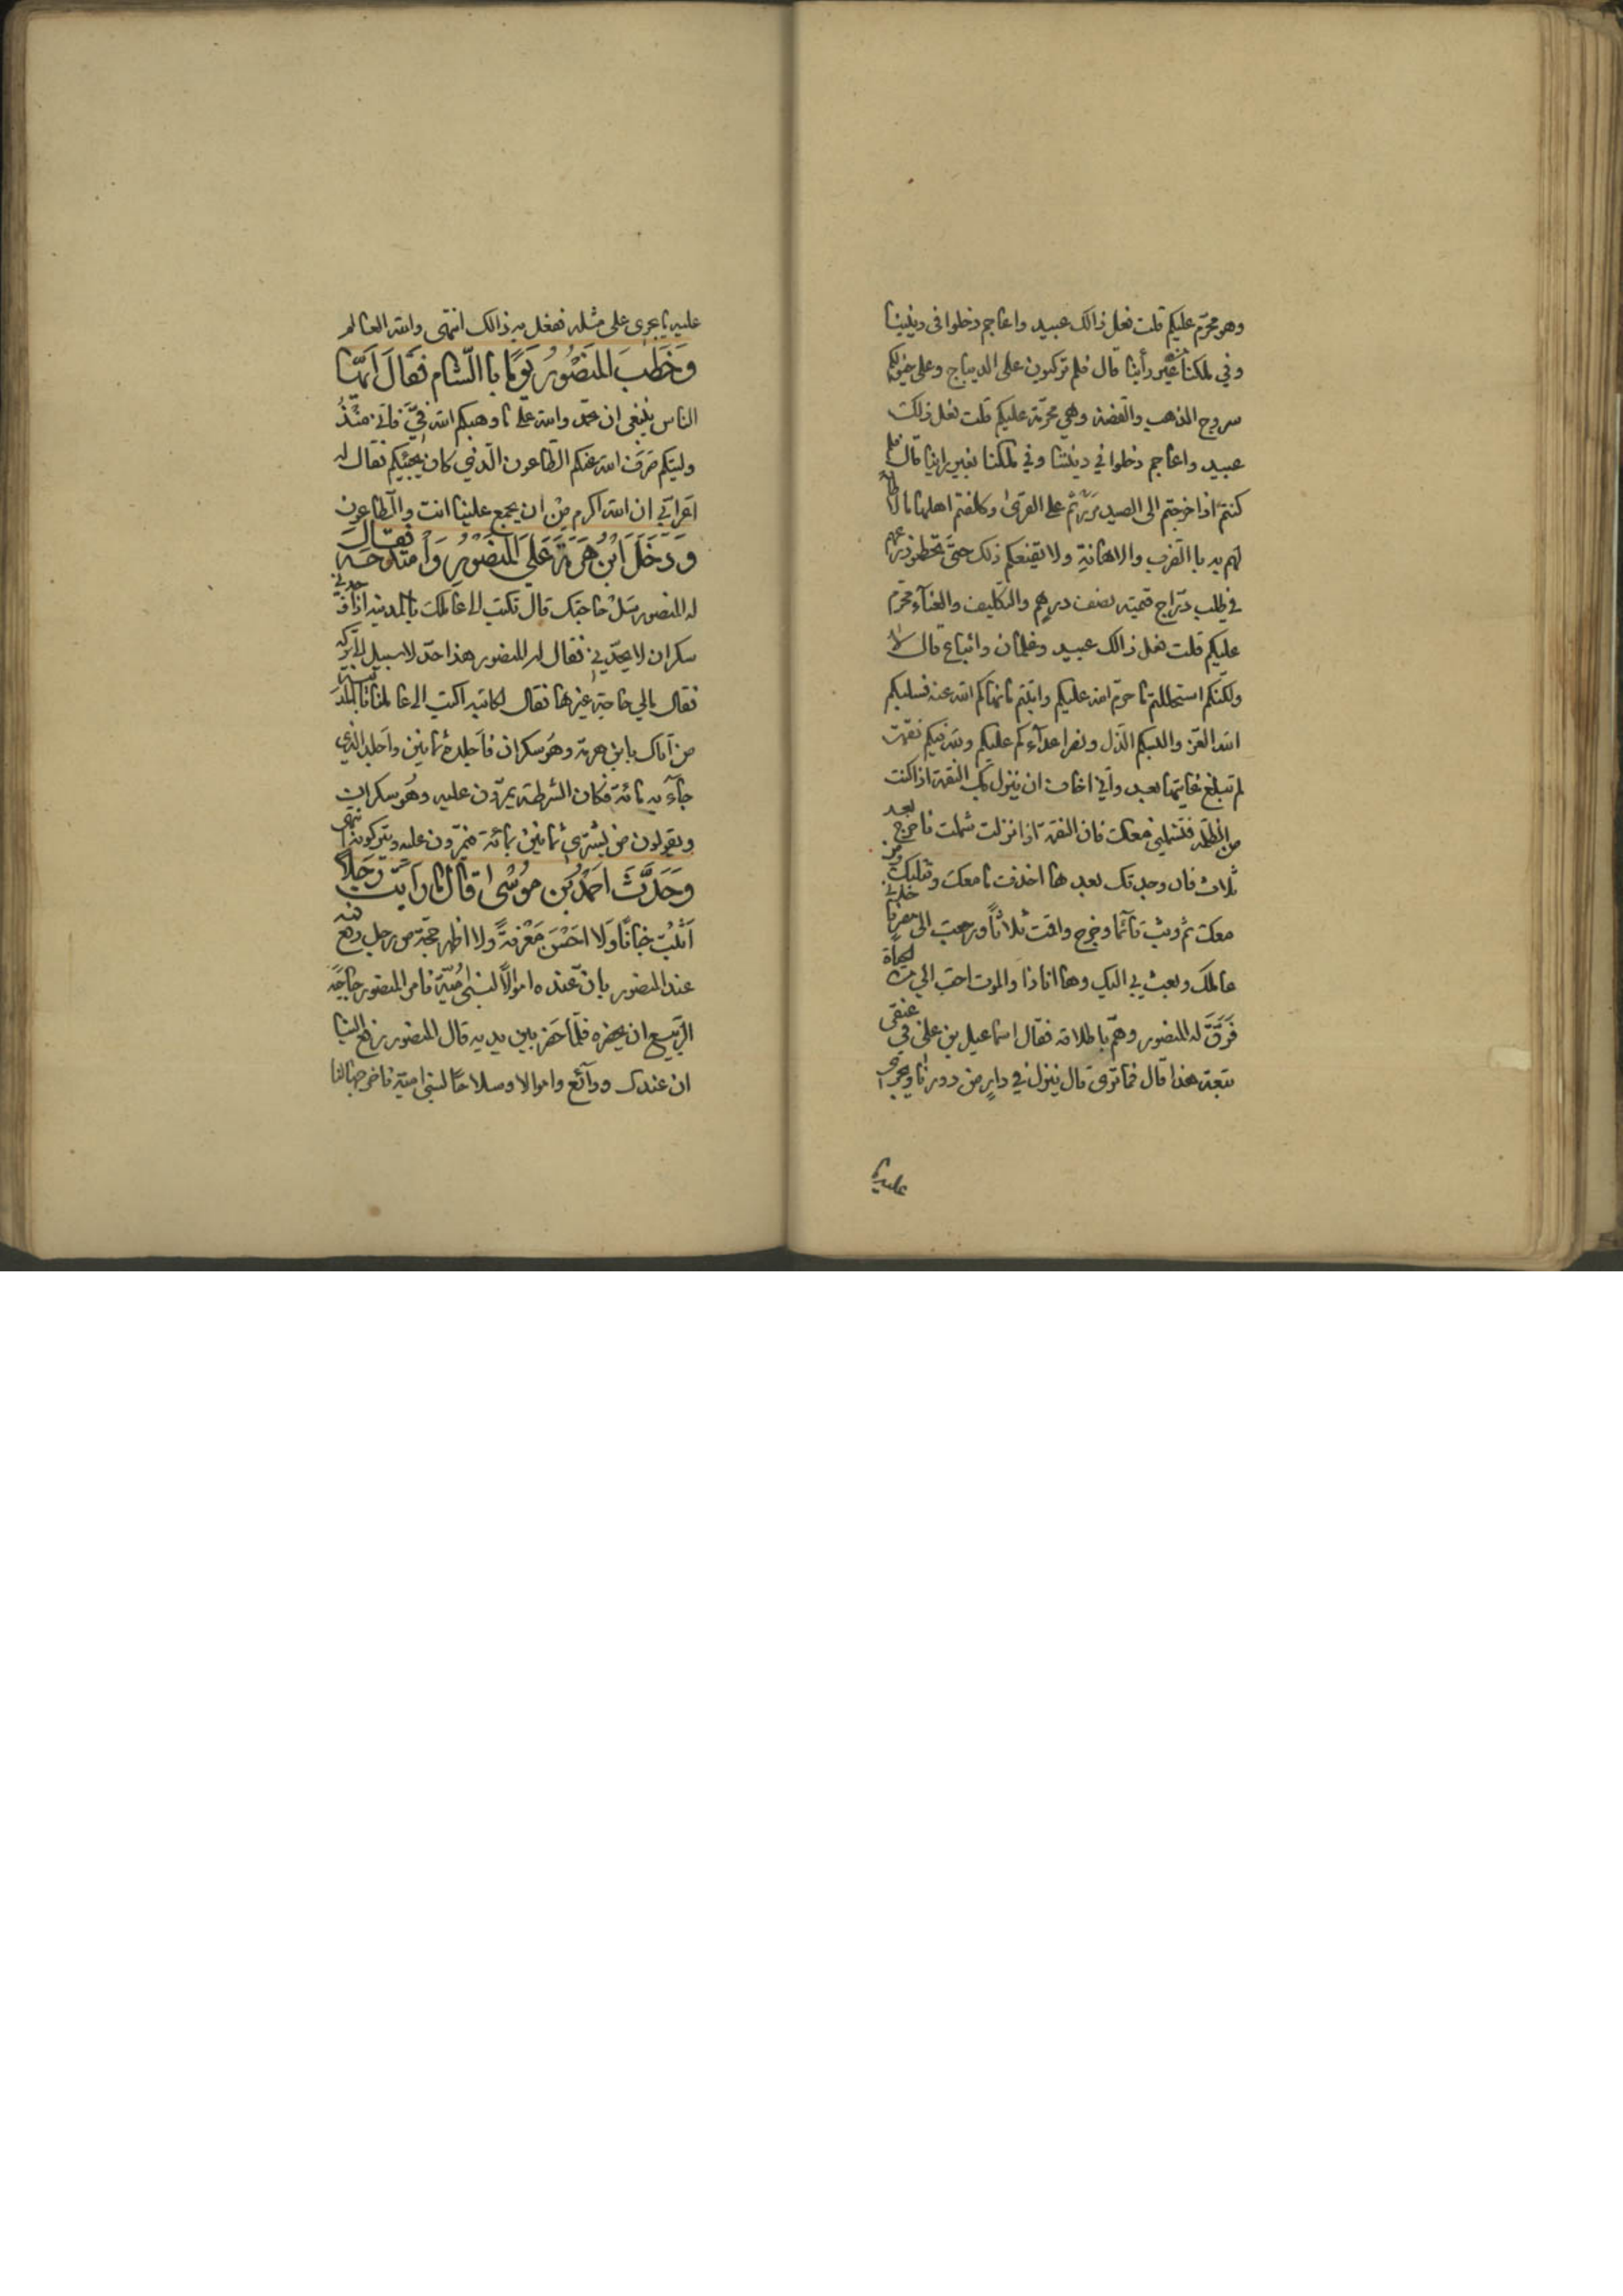 وهو محرّم عليكم قلت فعل ذالك عبيد واعاجم دخلوا في ديننا
وفي ملكنا بغير رأينا قال فلم تركبون على الديباج وعلى خيولكم
سروج الذهب والفضة وهي محرّمة عليكم قلت فعل ذلك
عبيد واعاجم دخلوا في ديننا وفي ملكنا بغير راينا قال فلم
كنتم اذا خرجتم الى الصيد مررتم على القرى وكلفتم اهلها مالا طاقة
لهم به با الضرب والاهانة ولا يقنعكم ذلك حتى تحطموا زرعهم
في طلب درّاج قيمته نصف درهم والتكليف والعنآء محرّم
عليكم قلت فعل ذالك عبيد وغلمان واتباع قال لا
ولكنكم استحللتم ما حرّم الله عليكم واتيتم ما نهاكم الله عنه فسلبكم
الله العزّ والبسكم الذّل ونصر اعدآءكم عليكم ولله فيكم نقمة
لم تبلغ غايتها بعد وانّي اخاف ان ينزل بك النقمة اذا كنت
من الظلمه فتشملني معك فان النقمة اذا نزلت شملت فاخرج بعد
ثلاث فان وجدتك بعدها اخذت ما معك وقتلتك ومن
معك ثم وثب قآئما وخرج واقمت ثلاثاً ورجعت الى مصر فاخذني
عاملك وبعث بي اليك وها انا ذا والموت احبّ اليّ من الحياة
فَرَقَّ له المنصور وهمّ باطلاقه فقال اسماعيل بن علي في عنقي
بيعة هذا قال فما ترى قال ينزل في دارٍ من دورنا ويجرى
عليه ما
عليه ما يجرى على مثله ففعل به ذالك انتهى والله العالم
وَخَطَبَ المَنصُورُ يَومًا با الشّام فَقَالَ اَيّهَا
الناس ينبغى ان تحمدوا الله على ما وهبكم الله فيَّ فانّي منذُ
وليتكم صَرَف الله عنكم الطاعون الّذي كان يجيئكم فقال له
اعرابيّ ان الله اكرم من ان يجمع علينا انت والطاعون
وَدَخَلَ ابْنُ هَرمَة عَلَى المَنصُورِ وَامتَدَحَهُ فقال
له المنصور سَل حاجتك قال تكتب الى عاملك بالمدينه اذا اخذني
سكران لا يحدّني فقال له المنصور هذا حدّ لا سبيل الى تركه
فقال مالي حاجة غيرها فقال لكاتبه اكتب الى عاملنا بالمدينة
من اَتاك بابن هرمة وهو سكران فاَجلدهُ ثمانين واَجلد الذي
جآء به مائة فكان الشرطة يمرّون عليه وهو سكران
ويقولون من يشترى ثمانين بمائة فيمرّون عليه ويتركونه انتهى
وَحَدَّثَ احَمَدُ بن مُوسَى قَالَ مَا رَاَيتُ رَجُلاً
اَثبَتَ جَنَانًا وَلا احَسَنَ مَعْرفةً ولا اظهر حجّة من رجل رفع فيه
عند المنصور بانّ عنده اموالاً لبنى اُميّة فامر المنصور حاجبَهُ
الرّبيع ان يحضره فلمّا حَضر بين يديه قال المنصور رفع الينا
ان عندك ودآئع واموالا وسلاحاً لبنى امية فاخرجها لنا